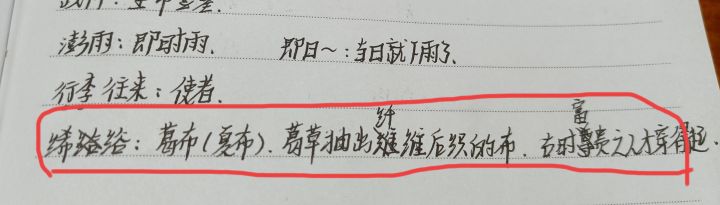 澎雨：即时雨. 即日～：当日就下雨了.
行李往来：使者.
绤：葛布(夏布). 葛草抽出纤维后织的布. 古时富贵之人才穿得起.